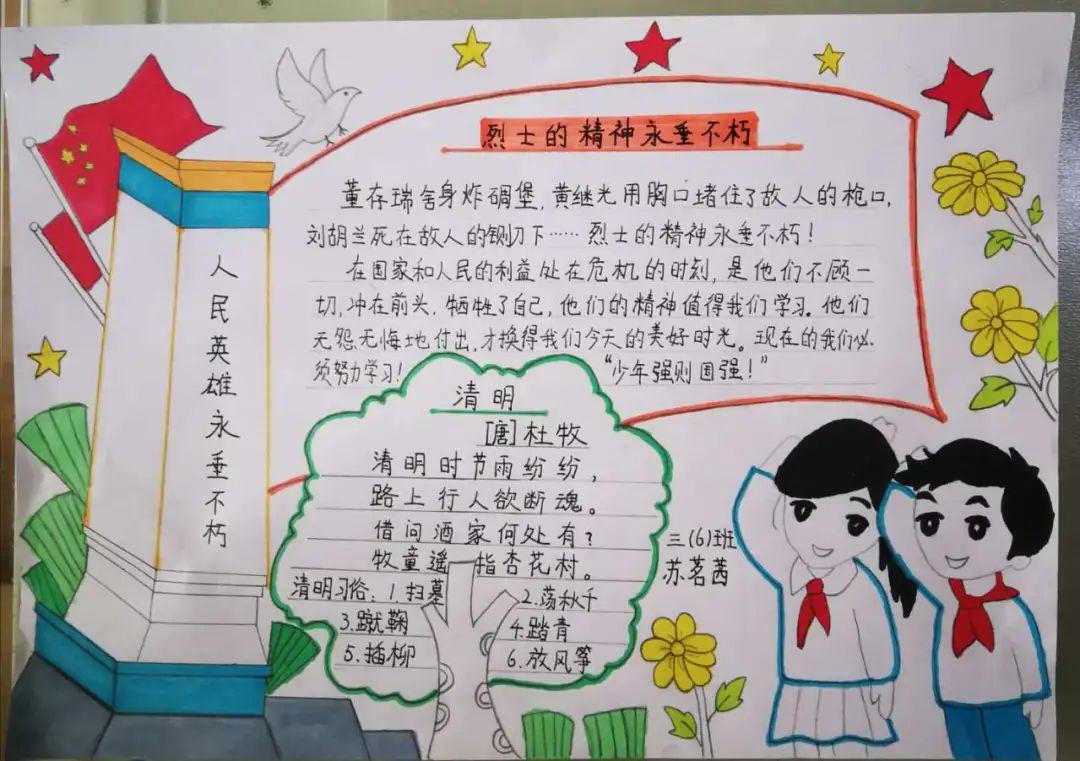 人民英雄永垂不朽
烈士的精神永垂不朽
董存瑞舍身炸碉堡,黄继光用胸口堵住了故人的枪口,
刘胡兰死在故人的铡刀下……烈士的精神永垂不朽!
在国家和人民的利益处在危机的时刻,是他们不顾一
切,冲在前头,牺牲了自己,他们的精神值得我们学习。他们
无怨无悔地付出,才换得我们今天的美好时光。现在的我们必
须努力学习!“少年强则国强!”
清明
[唐]杜牧
清明时节雨纷纷,
路上行人欲断魂。
借问酒家何处有?
牧童遥指杏花村。
清明习俗:1.扫墓 2.荡秋千
3.蹴鞠 4.踏青
5.插柳 6.放风筝
三(6)班
苏茗茜